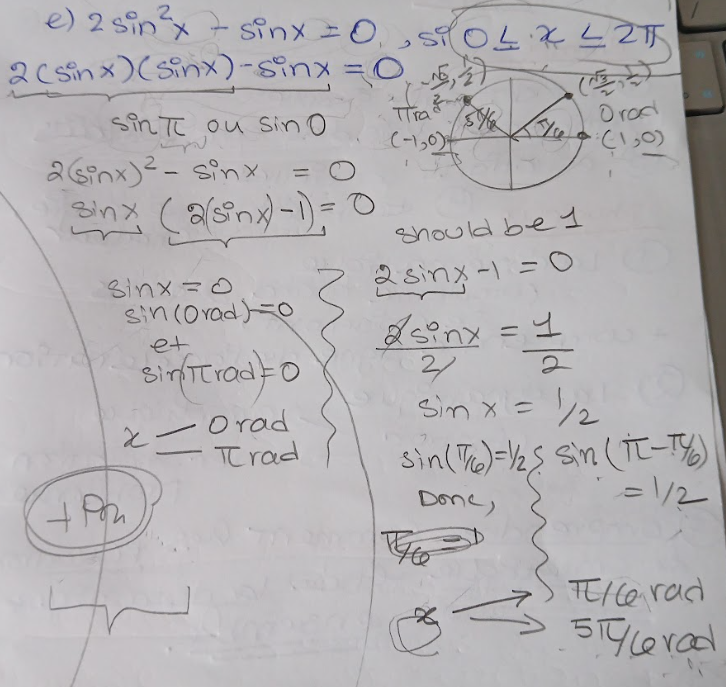 e) 2 sin²x - sinx = 0, si 0 ≤ x ≤ 2π
2(sinx)(sinx) - sinx = 0
sinπ ou sin 0
(-√3/2, 1/2)
(√3/2, 1/2)
π rad
5π/6
π/6
0 rad
(-1,0)
(1,0)
2(sinx)² - sinx = 0
sinx (2(sinx)-1) = 0
sinx = 0
sin(0rad)=0
et
sin(πrad)=0
x
0 rad
π rad
+ Pn
should be 1
2 sinx - 1 = 0
2sinx/2 = 1/2
sin x = 1/2
sin(π/6)=1/2
Donc,
π/6
sin (π-π/6)
= 1/2
x
π/6 rad
5π/6 rad